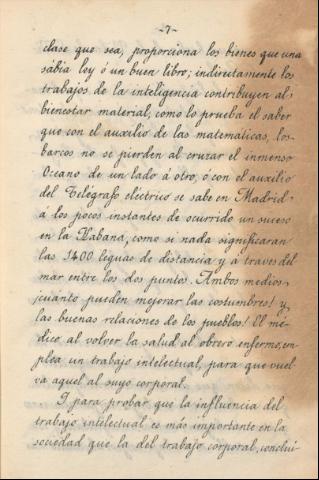 -7-
clase que sea, proporciona los bienes que una
sábia ley ó un buen libro; indirectamente los
trabajos de la inteligencia contribuyen al
bienestar material, como lo prueba el saber
que con el auxilio de las matemáticas, los
barcos no se pierden al cruzar el inmenso
Oceano de un lado á otro, ó con el auxilio
del Telégrafo eléctrico se sabe en Madrid
a los pocos instantes de ocurrido un suceso
en la Habana, como si nada significaran
las 1400 leguas de distancia y á traves del
mar entre los dos puntos. Ambos medios
¡cuánto pueden mejorar las costumbres! y
las buenas relaciones de los pueblos! El mé-
dico al volver la salud al obrero enfermo, em
plea un trabajo intelectual, para que vuel
va aquel al suyo corporal.
Y para probar que la influencia del
trabajo intelectual es más importante en la
sociedad que la del trabajo corporal, conclui-